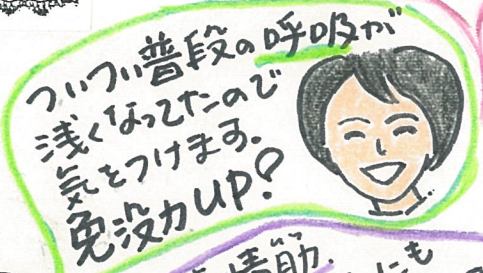 ついつい普段の呼吸が
浅くなってたので
気をつけます。
免没力UP?
にも